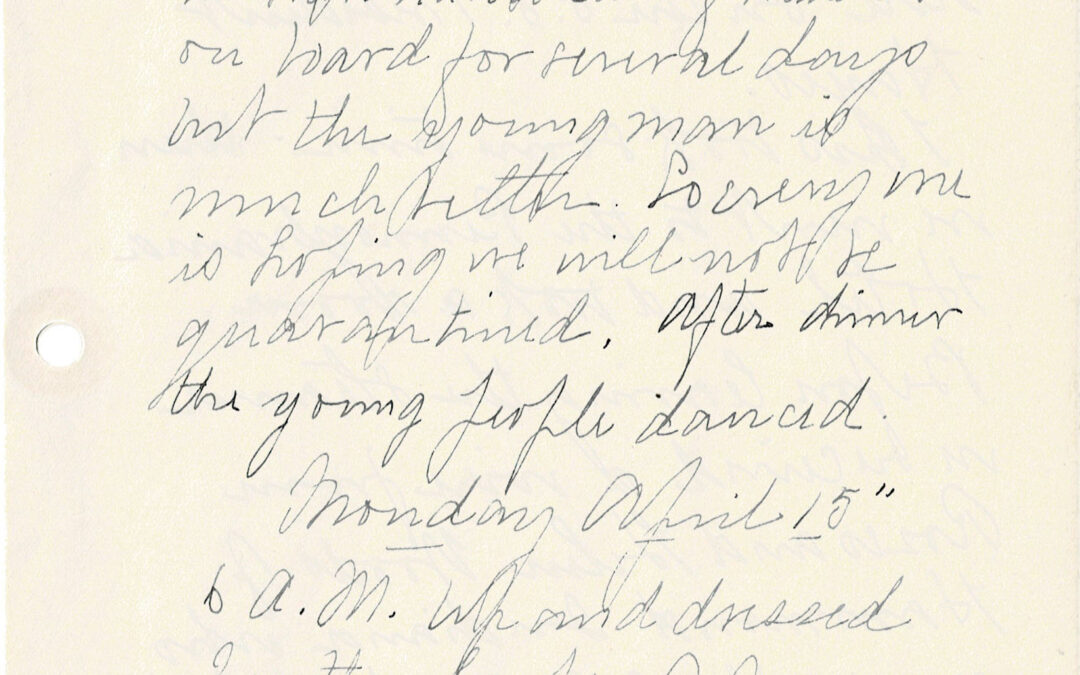 on board for several days
but the young man is
much better. So every one
is hoping we will not be
quarantined. After dinner
the young people danced.
Monday April 15"
6 A.M. Up and dressed